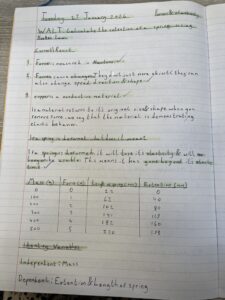 Tuesday 27 January 2026
W.A.L.T. Calculate the extention of a spring using Hookes law
Correct/Recast
1. Force is measured in Newtons
2. Forces cause changes they dont just move objects they can also change speed direction & shape
3. copper is a conductive material
If a material returns to its original size & shape when you remove force we say that the material is demonstrating elastic behavior
If a spring is deformed what does it mean?
If a spring is deformed it will lose its elasticity & will no longer be This means it has gone beyond its elastic limit
Mass (g) Force (N) Length of spring (mm) Extention (mm)
0 0 22 0
100 1 62 40
200 2 102 80
300 3 140 118
400 4 182 160
500 5 220 198
Identify Variables
Independent: Mass
Dependent: Extention & Length of spring